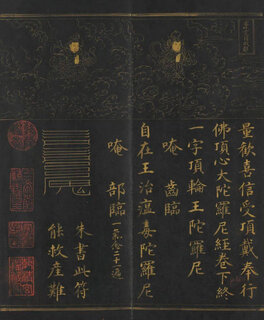 量歡喜信受頂戴奉行
佛頂心大陀羅尼經卷下終
一字頂輪王陀羅尼
唵 齒臨
自在王治瘟毒陀羅尼
唵 部臨
朱書此符
能救産難